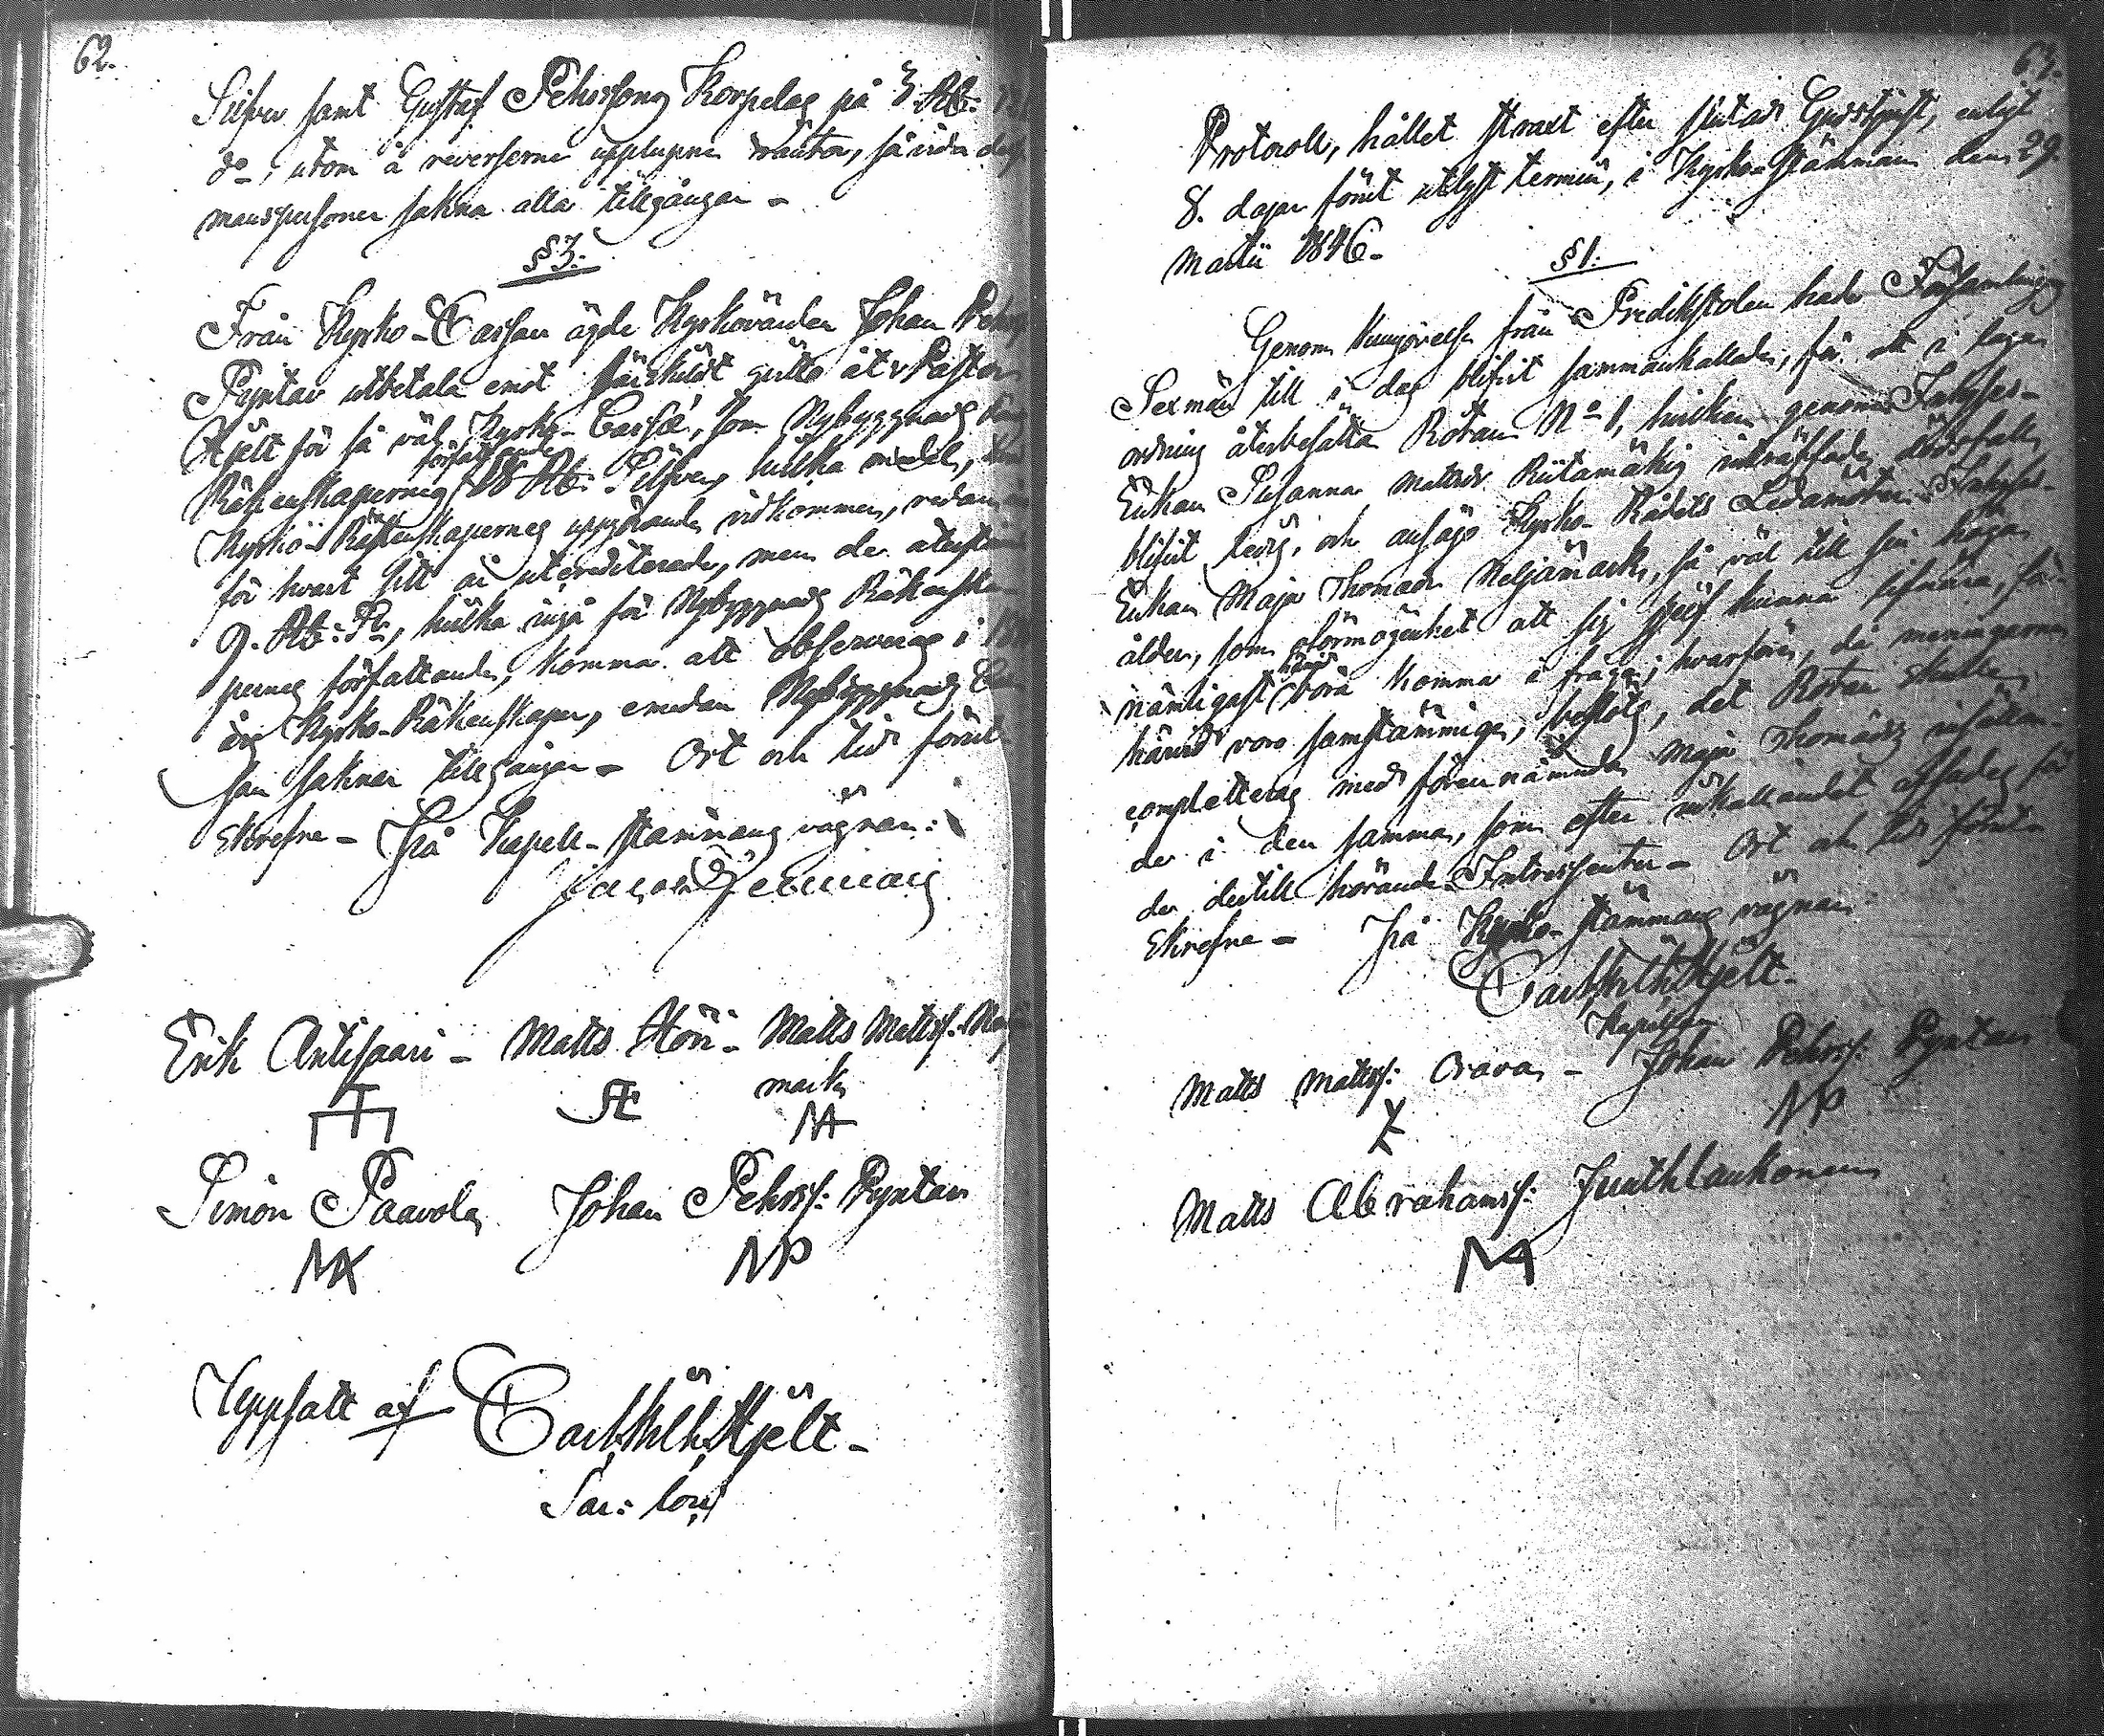 62.
Silfver samt Gustaf Pehrssons Korpelas på 3 Rb:
do, utom å reverserne upplupne räntor, så vida
manspersoner sakna alla tillgångar –
§ 3:
Från Kyrko-Cassan ägde Kyrkovärden Johan
Pyntar utbetala emot särskildt qvitto åt v Pastor
Hjelt för så väl Kyrko-Cassæ, som Nybyggnads
Räkenskapernes författande 18 Rb: Silfver, hvilka medel,
Kyrko-Räkenskapernes uppgörande vidkommer, redan
för hvart sitt år utcrediterade, men de återstående
9. Rb: Sr, hvilka ingå för Nybyggnads Räkenska-
pernes författande, komma att observeras i
års Kyrko-Räkenskaper, emedan Nybyggnads
san saknar tillgångar – Ort och tid förut-
skrefne – På Kapell-stämmans vägnar:
Jacob Fellman
Erik Antisaari – Matts Höri – Matts Mattss:
marks
Simon Paavola Johan Pehrss: Pyntar
MP
Uppsatt af Carl Wilh. Hjelt –
Sac: lorj
63.
Protocoll, hållet straxt efter slutad Gudstjenst, enligt
8. dagar förut utlyst termin, i Kyrko-stämman den 29.
Martii 1846.
§ 1:
Genom kungörelse från Predikstolen hade Församlingens
Sexmän till i dag blifvit sammankallade, för att i laga
ordning återbesätta Rotan No 1, hvilken genom Inhyses-
Enkan Susanna Mattsdr Riitamäkis inträffade dödsfall
blifvit ledig, och ansågo Kyrko-Rådets Ledamöter Inhyses-
Enkan Maja Thomasdr Neljämarks, så väl till sin höga
ålder, som oförmögenhet att sig sjelf kunna lifnära, för-
nämligast härvid böra komma i fråga; hvarföre, då meningarne
härvid voro samstämmige, beslöts, det Rotan skulle
completteras med förennämnde Maja Thomasdr insättan-
de i den samma, som efter inkallandet affades för
de dertill hörande Intressenter – Ort och tid förut-
skrefne – På Kyrko-stämmans vägnar:
Carl Wilh Hjelt –
Kapellan
Matts Mattss: Orava – Johan Pehrss: Pyntar
MP
Matts Abrahamss: Juuthlankonen
MA